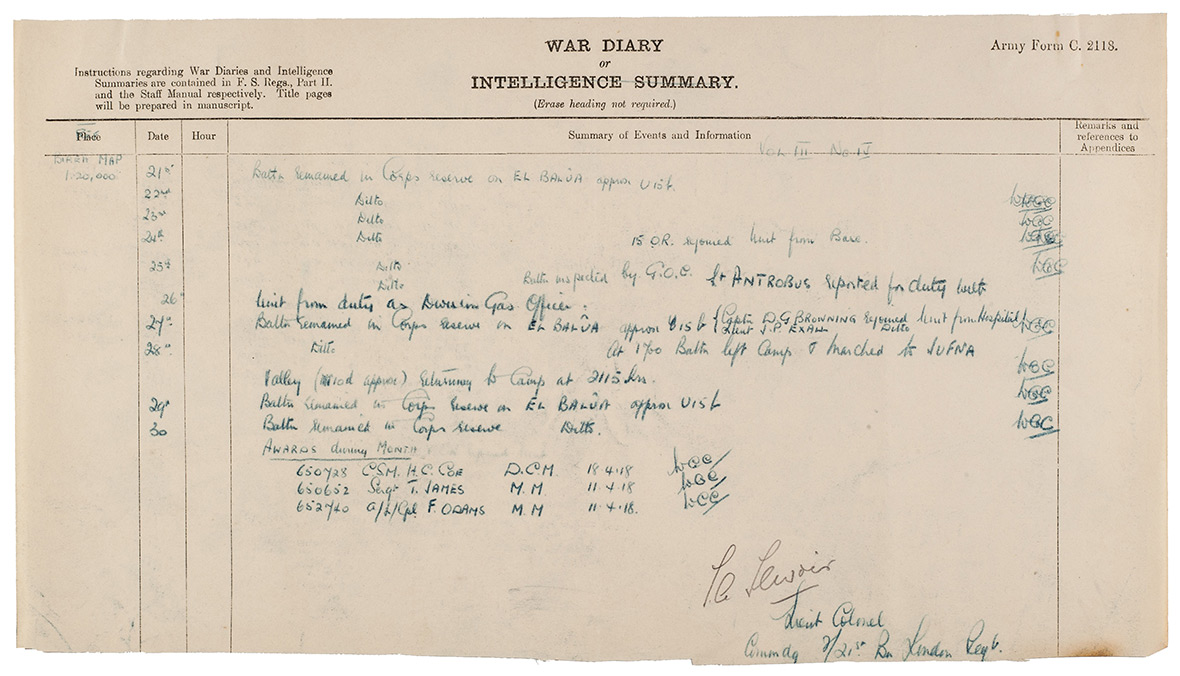 WAR DIARY
or
INTELLIGENCE SUMMARY.
(Erase heading not required.)
Army Form C. 2118.
Instructions regarding War Diaries and Intelligence
Summaries are contained in F. S. Regs., Part II.
and the Staff Manual respectively. Title pages
will be prepared in manuscript.
Place Date Hour Summary of Events and Information Remarks and references to Appendices
Vol III No IV
MAP
1:20,000
21st Battn remained in Corps reserve on EL BALÛA approx U15b. WGC
22nd Ditto WGC
23rd Ditto WGC
24th Ditto 15 O.R. rejoined Unit from Base. WGC
25th Ditto
Ditto Battn inspected by G.O.C. Lt ANTROBUS reported for duty with
26th Unit from duty as Division Gas Officer.
27th Battn remained in Corps reserve on EL BALÛA approx U15b { Captn D.G BROWNING rejoined Unit from Hospital WGC
Lieut J.P. EXALL Ditto
28th Ditto At 1700 Battn left Camp & marched to JUFNA
Valley ( approx) returning to Camp at 2115 hrs. WGC
29th Battn remained in Corps Reserve on EL BALÛA approx U15b WGC
30 Battn remained in Corps reserve Ditto. WGC
AWARDS during MONTH
650728 C.S.M. H.C. COE D.C.M. 18.4.18 WGC
650652 Sergt T. JAMES M.M. 11.4.18 WGC
652740 A/L/Cpl F. ODAMS M.M 11.4.18. WGC
Lieut Colonel
Commdg 2/21st Bn London Regt.